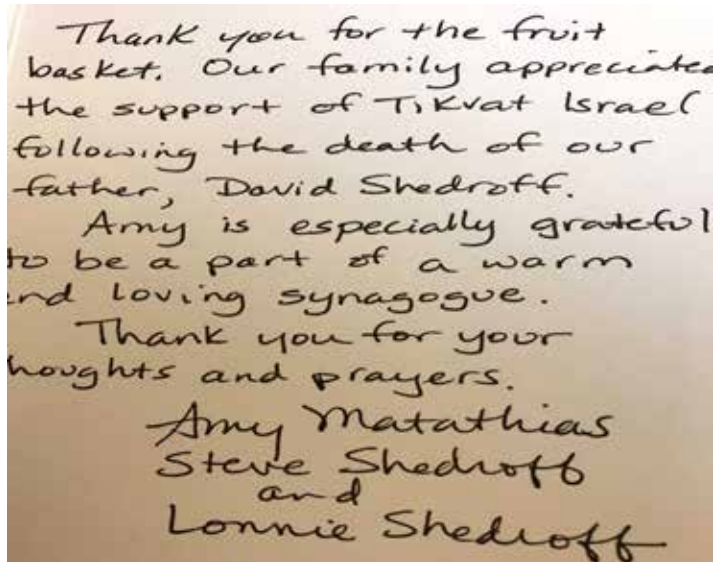 Thank you for the fruit
basket. Our family appreciated
the support of Tikvat Israel
following the death of our
father, David Shedroff.
Amy is especially grateful
to be a part of a warm
and loving synagogue.
Thank you for your
thoughts and prayers.
Amy Matathias
Steve Shedroff
and
Lonnie Shedroff